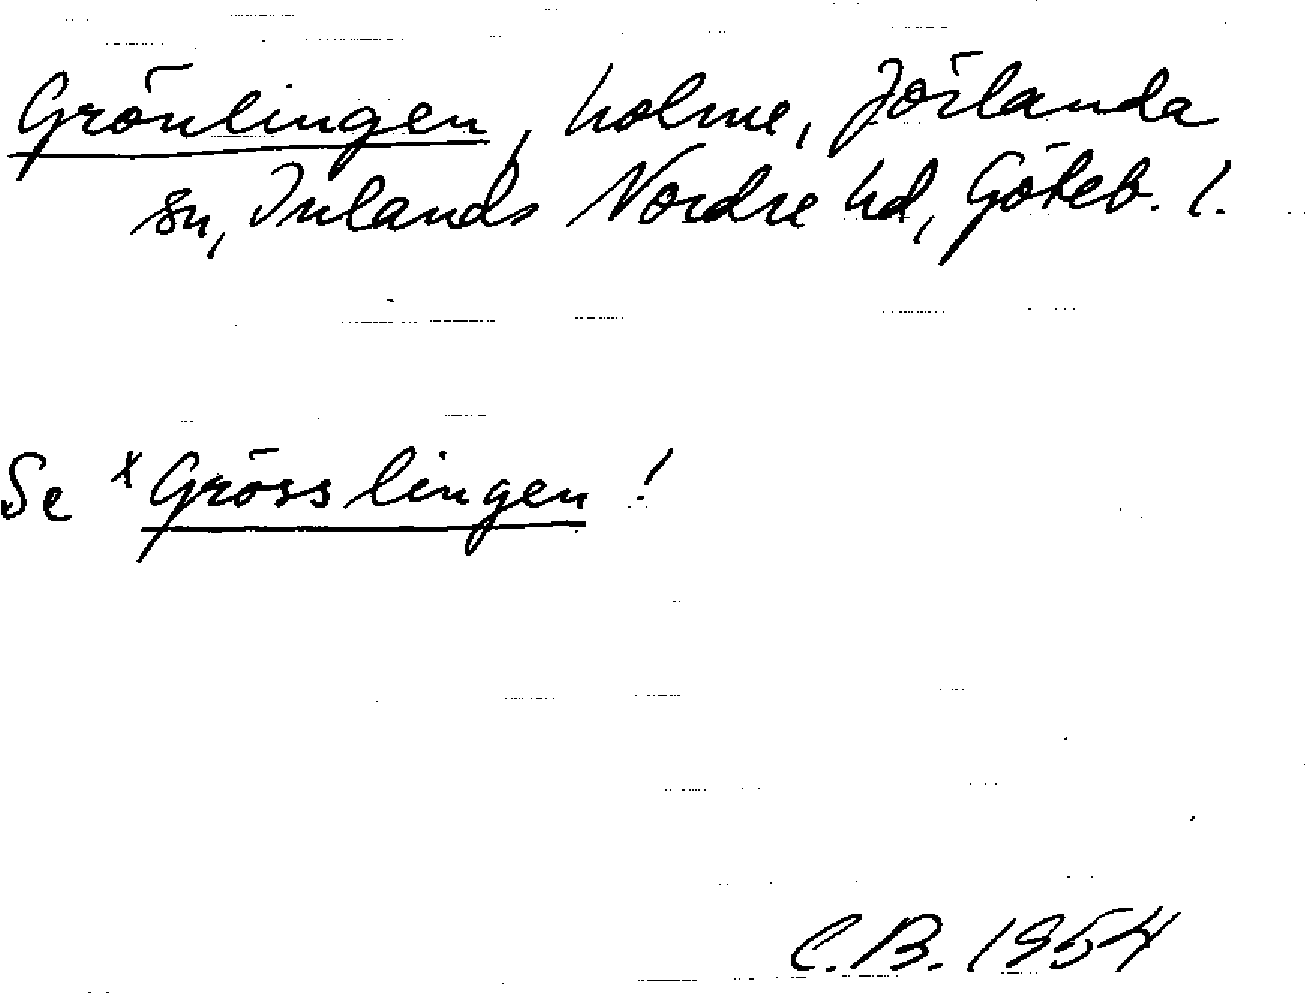 Grönlingen, holme, Jörlanda
sn, Inlands Nordre hd, Göteb. l.
Se ˣGrösslingen!
C.B. 1954